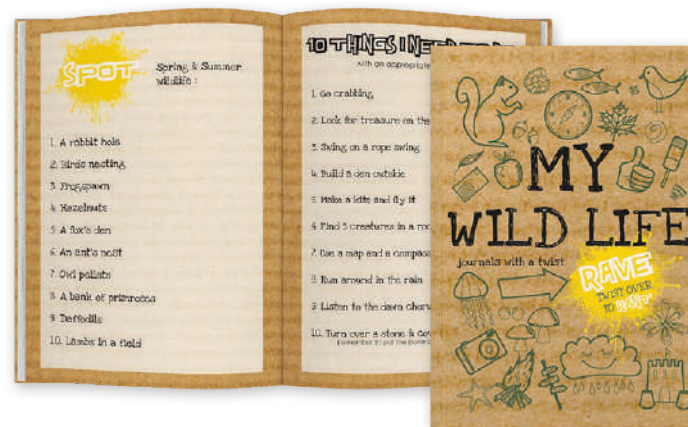 SPOT
Spring & Summer
wildlife :
1. A rabbit hole
2. Birds nesting
3. Frogspawn
4. Hazelnuts
5. A fox's den
6. An ant's nest
7. Owl pellets
8. A bank of primroses
9. Daffodils
10. Lambs in a field
10 THINGS I
with an appropriate
1. Go crabbing
2. Look for treasure on the
3. Swing on a rope swing
4. Build a den outside
5. Make a kite and fly it
6. Find 5 creatures in a
7. Use a map and a compass
8. Run around in the rain
9. Listen to the dawn
10. Turn over a stone &
MY
WILD LIFE
journals with a twist
RAVE
TWIST OVER
TO RANT